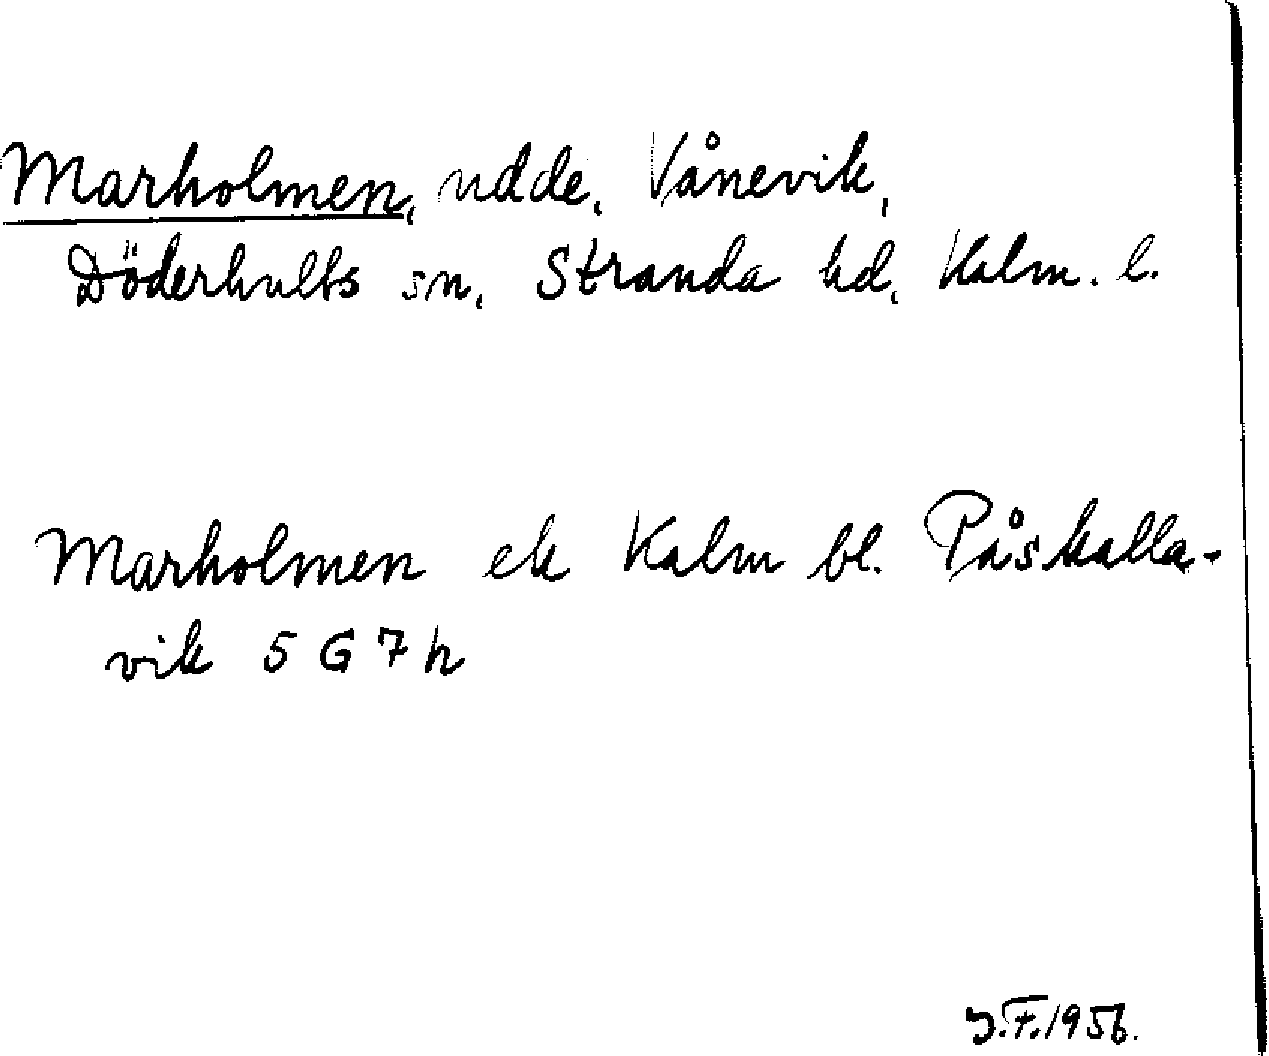 Marholmen, udde, Vånevik,
Döderhults sn, Stranda hd, Kalm. l.
Marholmen ek Kalm bl. Påskalla-
vik 5 G 7 h
J.F. 1956.